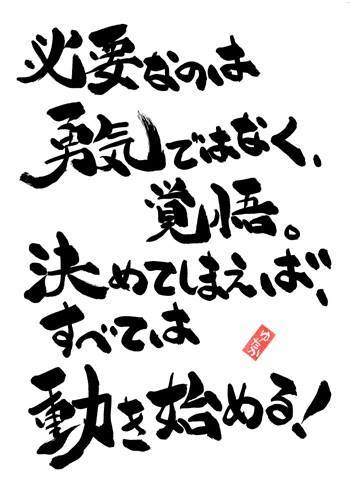 必要なのは
勇気ではなく、
覚悟。
決めてしまえば、
すべては
動き始める！